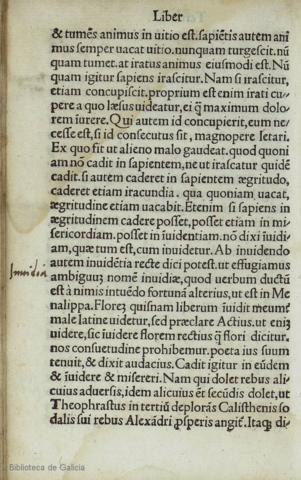 Liber
& tumẽs animus in uitio est. sapiẽtis autem ani
mus semper uacat uitio. nunquam turgescit. nũ
quam tumet. at iratus animus eiusmodi est. Nũ
quam igitur sapiens irascitur. Nam si irascitur,
etiam concupiscit. proprium est enim irati cu-
pere a quo læsus uideatur, ei q̃ maximum dolo
rem iurere. Qui autem id concupierit, eum ne-
cesse est, si id consecutus sit, magnopere letari.
Ex quo fit ut alieno malo gaudeat. quod quoni
am nõ cadit in sapientem, ne ut irascatur quidẽ
cadit. si autem caderet in sapientem ægritudo,
caderet etiam iracundia. qua quoniam uacat,
ægritudine etiam uacabit. Etenim si sapiens in
ægritudinem cadere posset, posset etiam in mi-
sericordiam. posset in inuidentiam. nõ dixi ĩuidi
am, quæ tum est, cum inuidetur. Ab inuidendo
autem inuidẽtia recte dici potest. ut effugiamus
Inuidia
ambiguũ nomẽ inuidiæ, quod uerbum ductũ
est à nimis intuẽdo fortunã alterius, ut est in Me
nalippa. Florẽ quisnam liberum ĩuidit meum?
male latine uidetur, sed præclare Actius. ut enĩ
uidere, sic ĩuidere florem rectius q̃ flori dicitur.
nos consuetudine prohibemur. poeta ius suum
tenuit, & dixit audacius. Cadit igitur in eũdem
& ĩuidere & misereri. Nam qui dolet rebus ali
cuius aduersis, idem alicuius ẽt secũdis dolet, ut
Theophrastus in tertiũ deplorãs Calisthenis so
dalis sui rebus Alexãdri ꝓsperis angiť. Itaqꝫ di
Biblioteca de Galicia